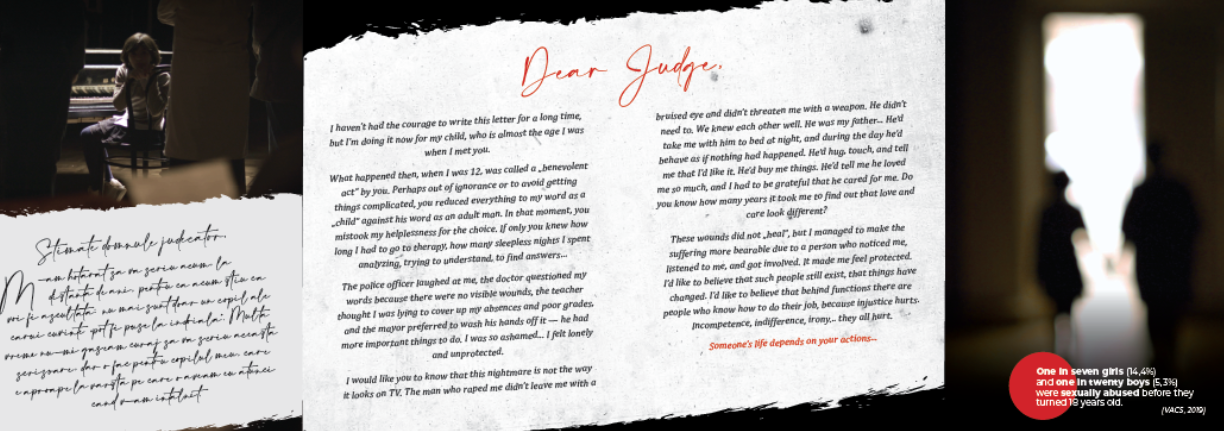 Stimate domnule judecator,
M-am hotarat sa va scriu acum, la
distanta de ani, pentru ca acum stiu ca
voi fi ascultata: nu mai sunt doar un copil ale
carui cuvinte pot fi puse la indoiala. Multa
vreme nu-mi gaseam curaj sa va scriu aceasta
scrisoare, dar o fac pentru copilul meu, care
e aproape la varsta pe care o aveam eu atunci
cand v-am intalnit
Dear Judge,
I haven't had the courage to write this letter for a long time,
but I'm doing it now for my child, who is almost the age I was
when I met you.
What happened then, when I was 12, was called a „benevolent
act" by you. Perhaps out of ignorance or to avoid getting
things complicated, you reduced everything to my word as a
„child" against his word as an adult man. In that moment, you
mistook my helplessness for the choice. If only you knew how
long I had to go to therapy, how many sleepless nights I spent
analyzing, trying to understand, to find answers...
The police officer laughed at me, the doctor questioned my
words because there were no visible wounds, the teacher
thought I was lying to cover up my absences and poor grades,
and the mayor preferred to wash his hands off it — he had
more important things to do. I was so ashamed... I felt lonely
and unprotected.
I would like you to know that this nightmare is not the way
it looks on TV. The man who raped me didn't leave me with a
bruised eye and didn't threaten me with a weapon. He didn't
need to. We knew each other well. He was my father... He'd
take me with him to bed at night, and during the day he'd
behave as if nothing had happened. He'd hug, touch, and tell
me that I'd like it. He'd buy me things. He'd tell me he loved
me so much, and I had to be grateful that he cared for me. Do
you know how many years it took me to find out that love and
care look different?
These wounds did not „heal", but I managed to make the
suffering more bearable due to a person who noticed me,
listened to me, and got involved. It made me feel protected.
I'd like to believe that such people still exist, that things have
changed. I'd like to believe that behind functions there are
people who know how to do their job, because injustice hurts.
Incompetence, indifference, irony... they all hurt.
Someone's life depends on your actions...
One in seven girls (14,4%)
and one in twenty boys (5,3%)
were sexually abused before they
turned 18 years old.
(VACS, 2019)